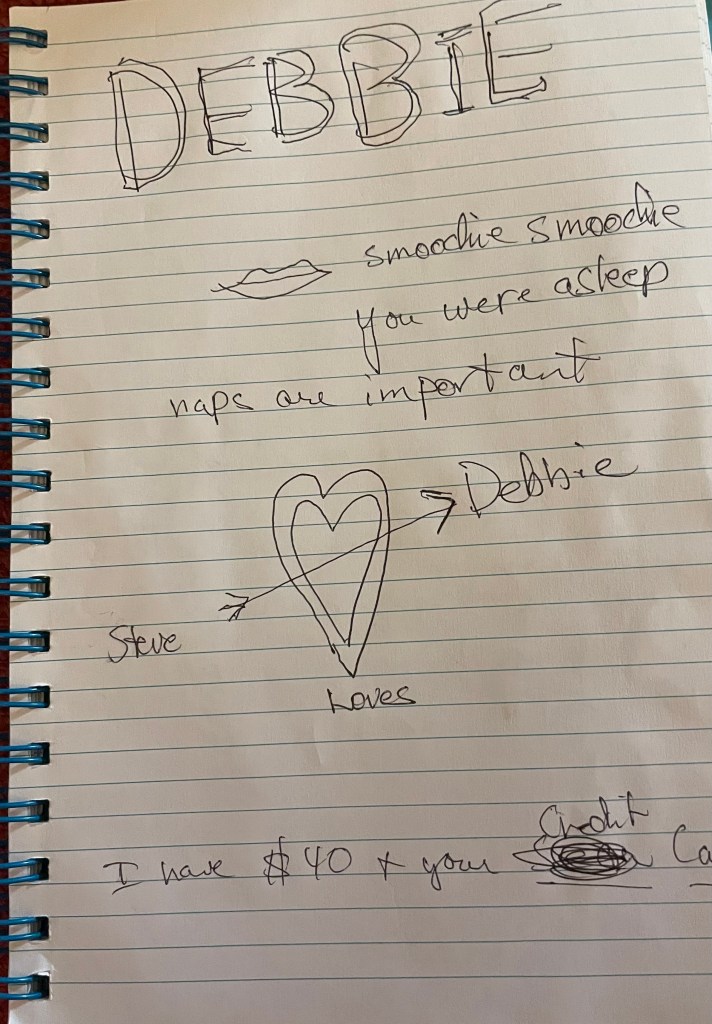 DEBBIE
smoochie smoochie
you were asleep
naps are important
Debbie
Steve
Loves
Credit
I have $40 + your Ca